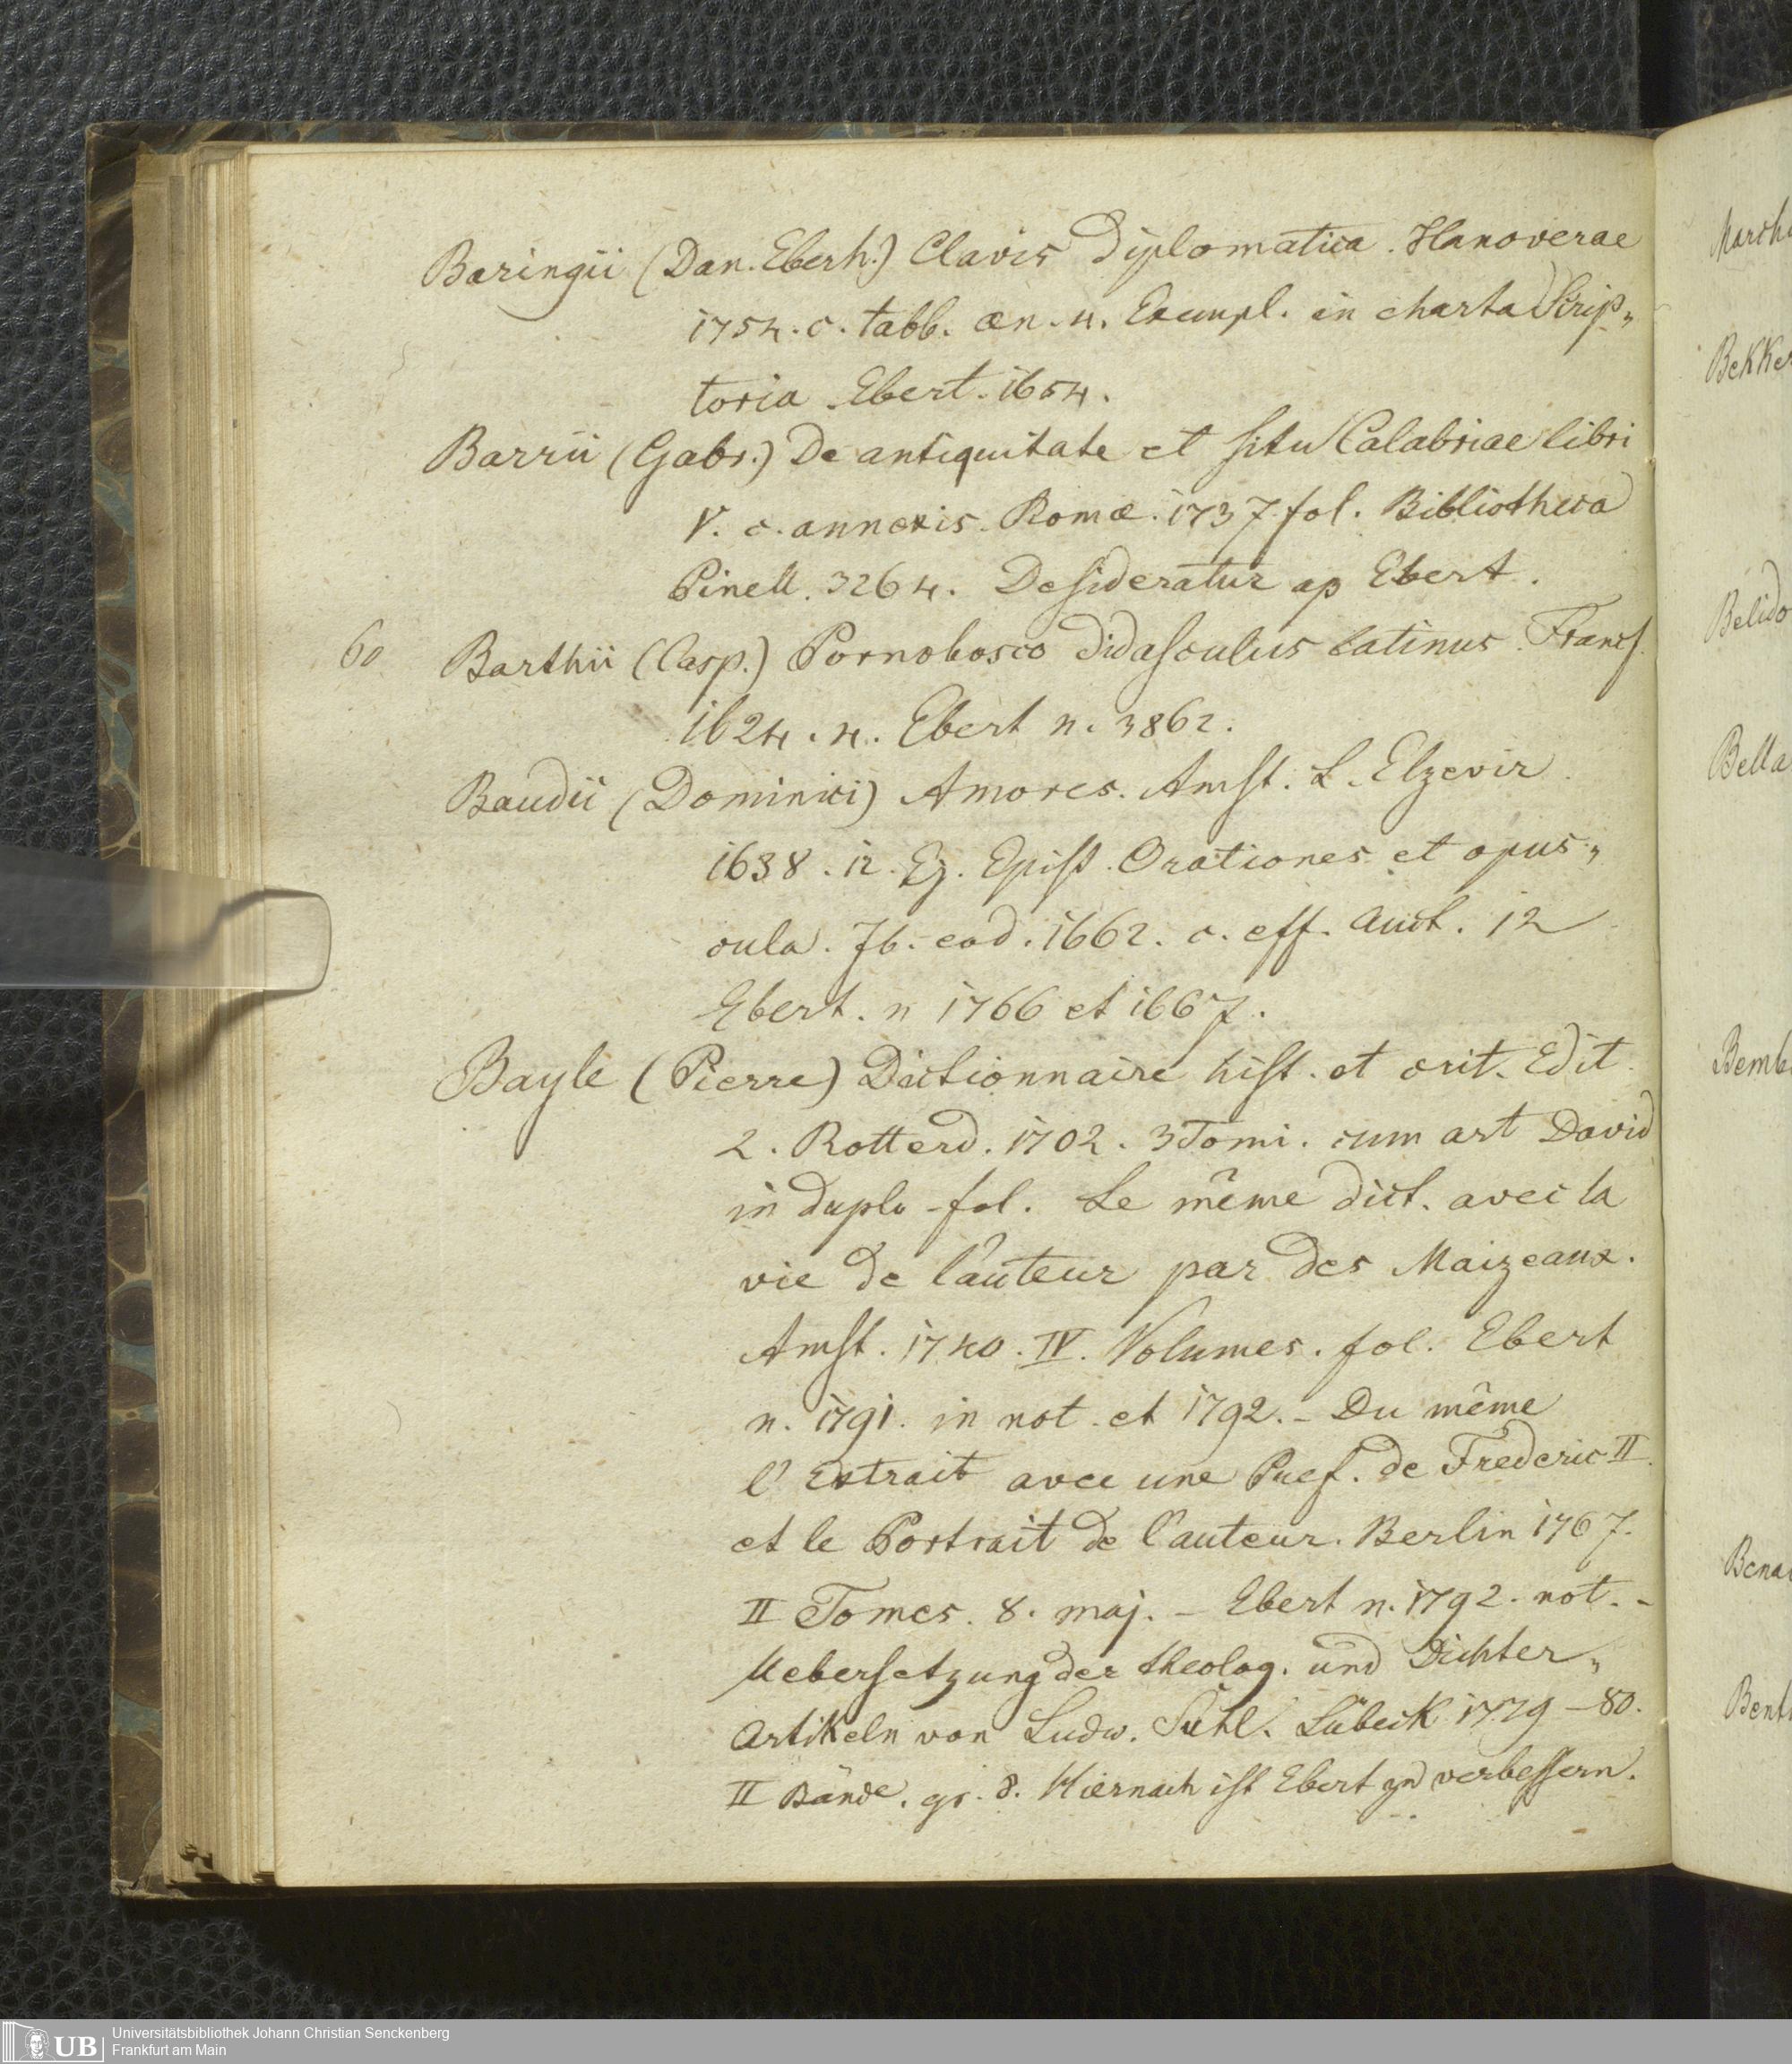 Baringii (Dan. Eberh.) Clavis Diplomatica. Hanoverae
1754. c. tabb. æn. 4. Exempl. in charta Scrip„
toria. Ebert. 1654.
Barrii (Gabr.) De antiquitate et situ Calabriae libri
V. c. annexis. Romæ. 1737. fol. Bibliotheca
Pinell. 3264. Desideratur ap Ebert.
60 Barthii (Casp.) Pornobosco didasculus latinus. Francf.
1624. 4. Ebert n. 3862.
Baudii (Dominici) Amores. Amst. L. Elzevir
1638. 12. Ej. Epist. Orationes et opus„
cula. Ib. eod. 1662. c. eff. auct. 12
Ebert. n 1766 et 1667.
Bayle (Pierre) Dictionnaire hist. et crit. Edit.
2. Rotterd. 1702. 3 Tomi. cum art David
in duplo - fol. Le même dict. avec la
vie de l'auteur par des Maizeaux.
Amst. 1740. IV. Volumes. fol. Ebert
n. 1791. in not. et 1792. - Du même
l'Extrait avec une Pref. de Frederic II.
et le Portrait de l'auteur. Berlin 1767.
II Tomes. 8. maj. - Ebert n. 1792. not. -
Uebersetzung der theolog. und Dichter„
Artikeln von Ludw. Suhl. Lübeck 1779 - 80.
II Bände. gr. 8. Hiernach ist Ebert zu verbessern.
March
Bekker
Belido
Bella
Bemb
Bena
Bent
Universitätsbibliothek Johann Christian Senckenberg
UB Frankfurt am Main